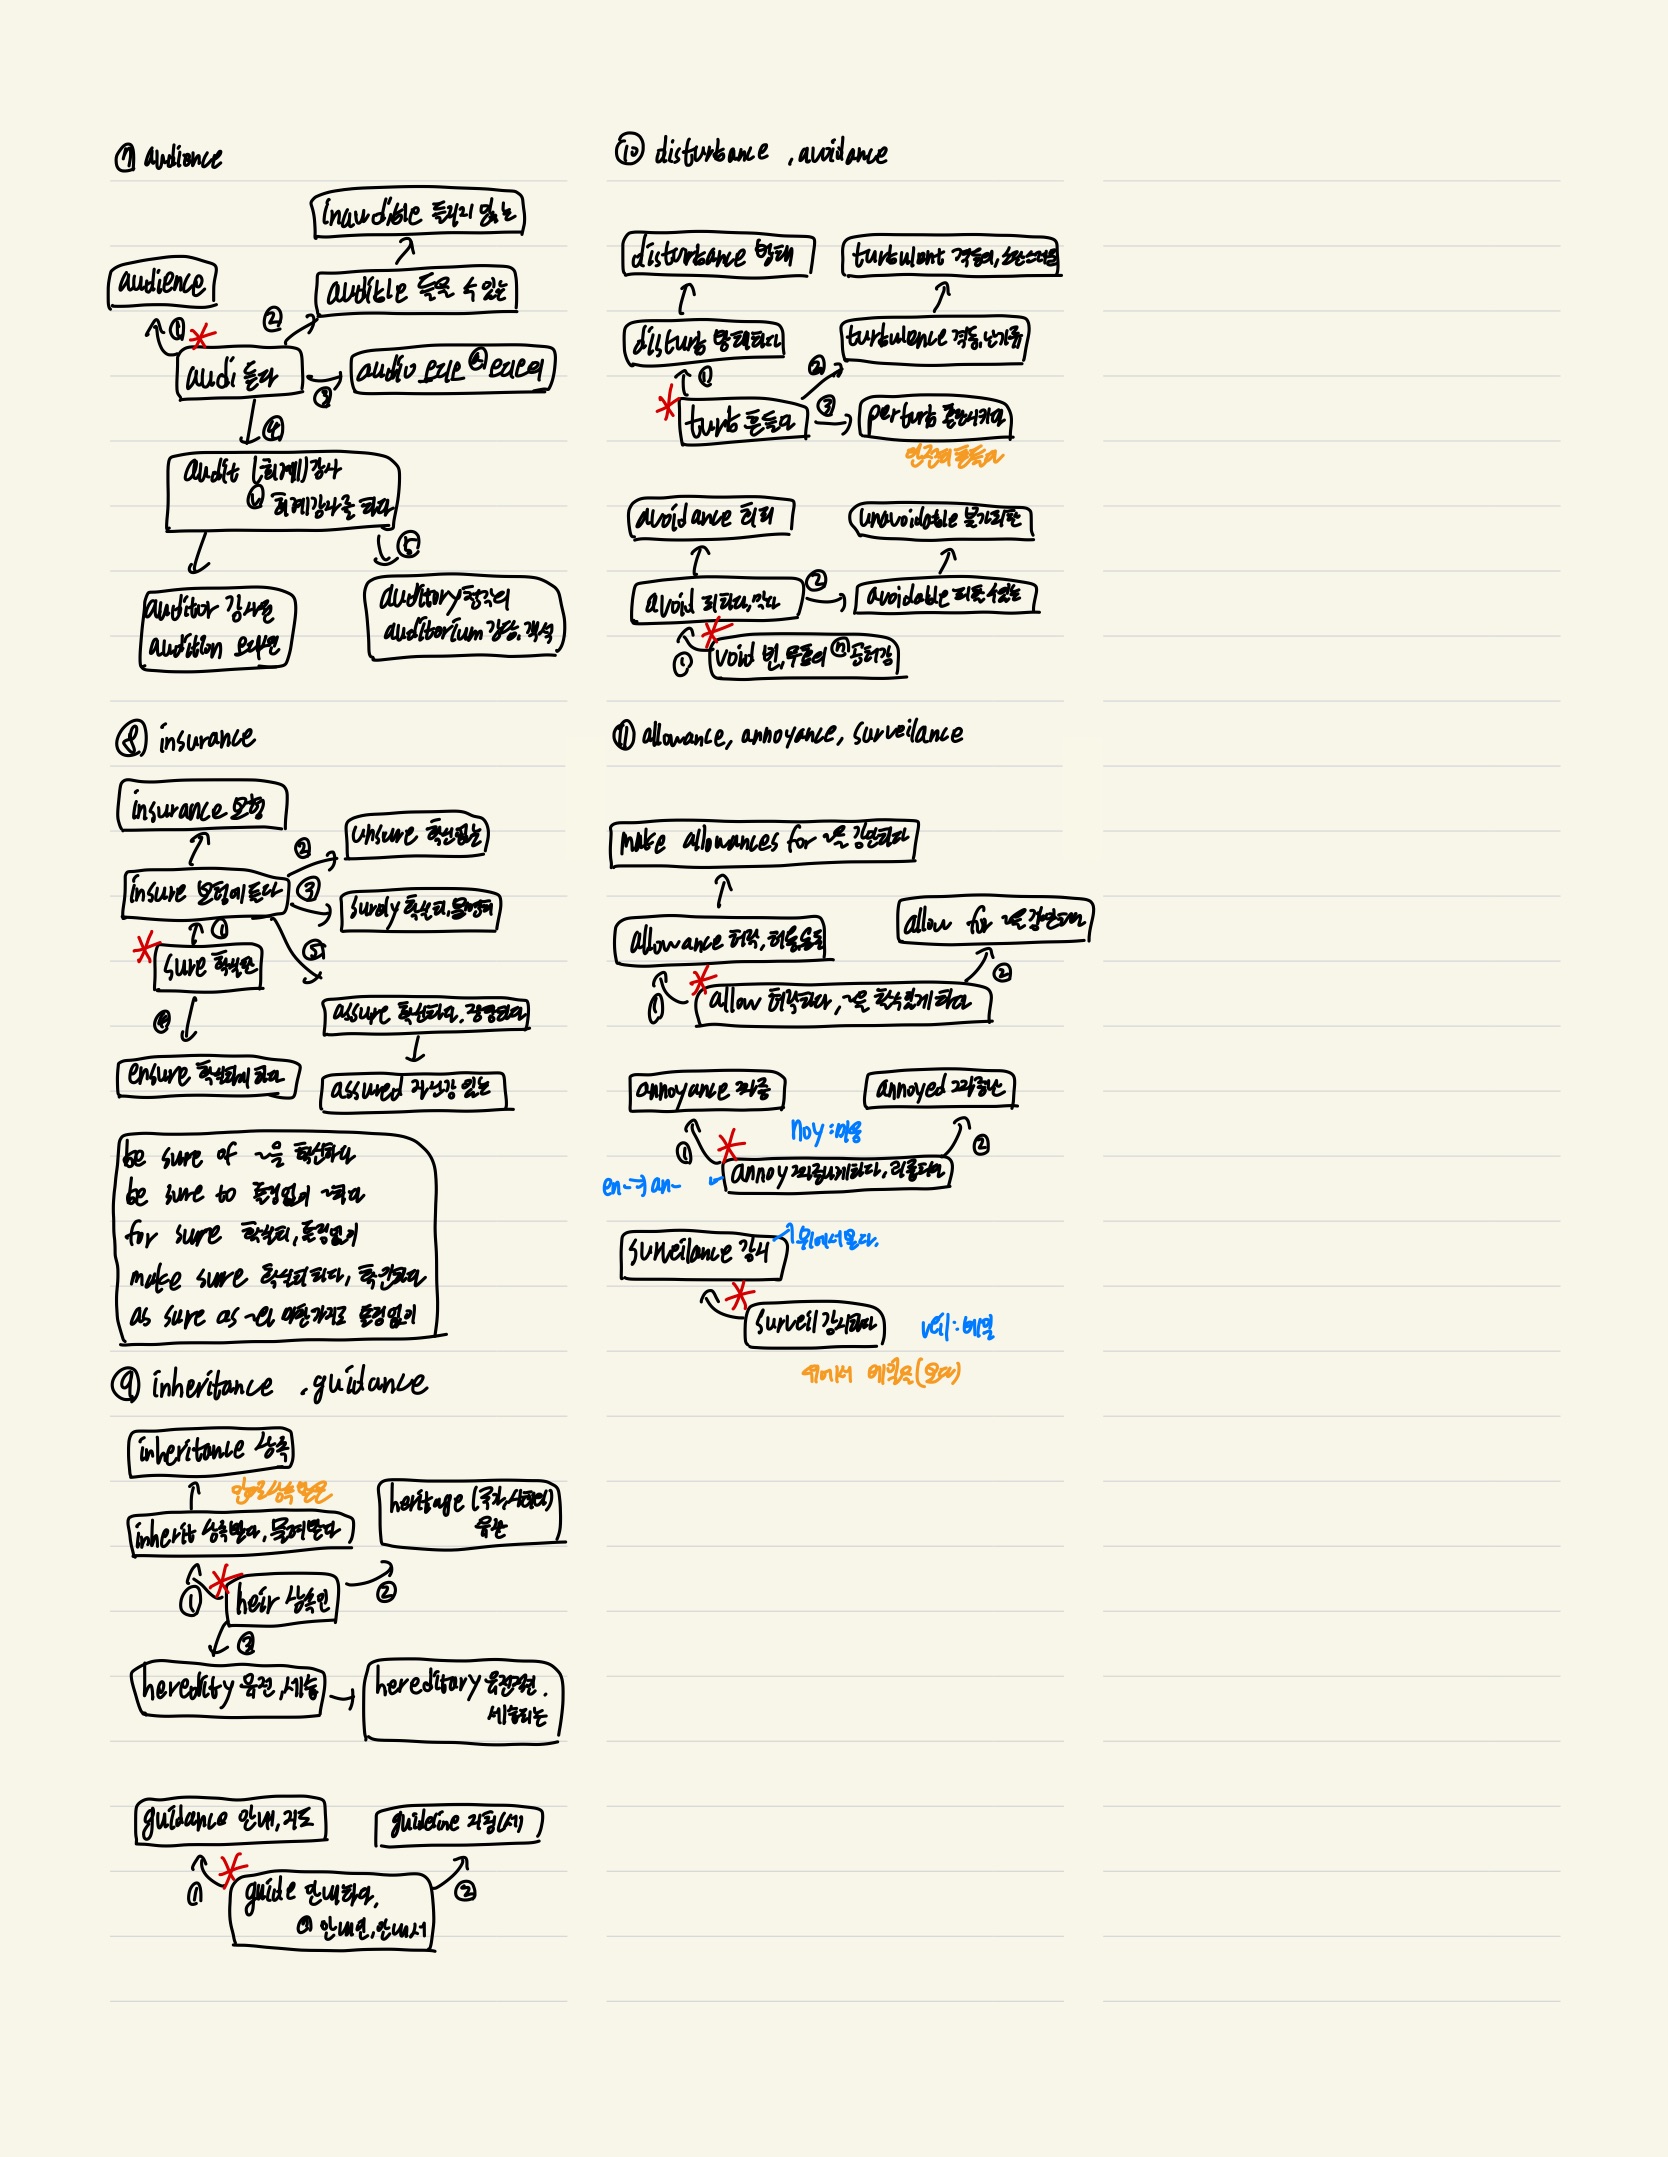 ⑦ audience
inaudible 들리지 않는
audience
audible 들을 수 있는
① ②
audi 듣다
③
audio 오디오 ⓐ 오디오의
④
audit (회계)감사
ⓥ 회계감사를 하다
⑤
auditor 감사관
audition 오디션
auditory 청각의
auditorium 강당, 객석
⑧ insurance
insurance 보험
unsure 확신없는
②
insure 보험에 들다
③
surely 확실히, 분명히
①
⑤
sure 확실한
④
assure 확신하다, 장담하다
ensure 확실하게 하다
assured 자신감 있는
be sure of ~을 확신하다
be sure to 틀림없이 ~하다
for sure 확실히, 틀림없이
make sure 확실히 하다, 확인하다
as sure as ~와 마찬가지로 틀림없이
⑨ inheritance , guidance
inheritance 상속
heritage (국가, 사회의)
유산
inherit 상속받다, 물려받다
①
heir 상속인
②
③
heredity 유전, 세습
hereditary 유전적인,
세습되는
guidance 안내, 지도
guideline 지침(서)
① ②
guide 안내하다,
ⓝ 안내인, 안내서
⑩ disturbance , avoidance
disturbance 방해
turbulent 격동의, 혼란스러운
disturb 방해하다
turbulence 격동, 난기류
① ②
turb 흔들다
③
perturb 혼란시키다
완전히 흔들다
avoidance 회피
unavoidable 불가피한
avoid 피하다, 막다
②
avoidable 피할 수 있는
①
void 빈, 무효의 ⓝ 공허감
⑪ allowance, annoyance, surveilance
make allowances for ~을 감안하다
allowance 허락, 허용, 용돈
allow for ~을 감안하다
① ②
allow 허락하다, ~을 할 수 있게 하다
annoyance 짜증
annoyed 짜증난
noy : 미움
① ②
annoy 짜증나게하다, 괴롭히다
en-→an-
surveilance 감시
위에서 보다.
surveil 감시하다
veil : 베일
위에서 베일을(보다)